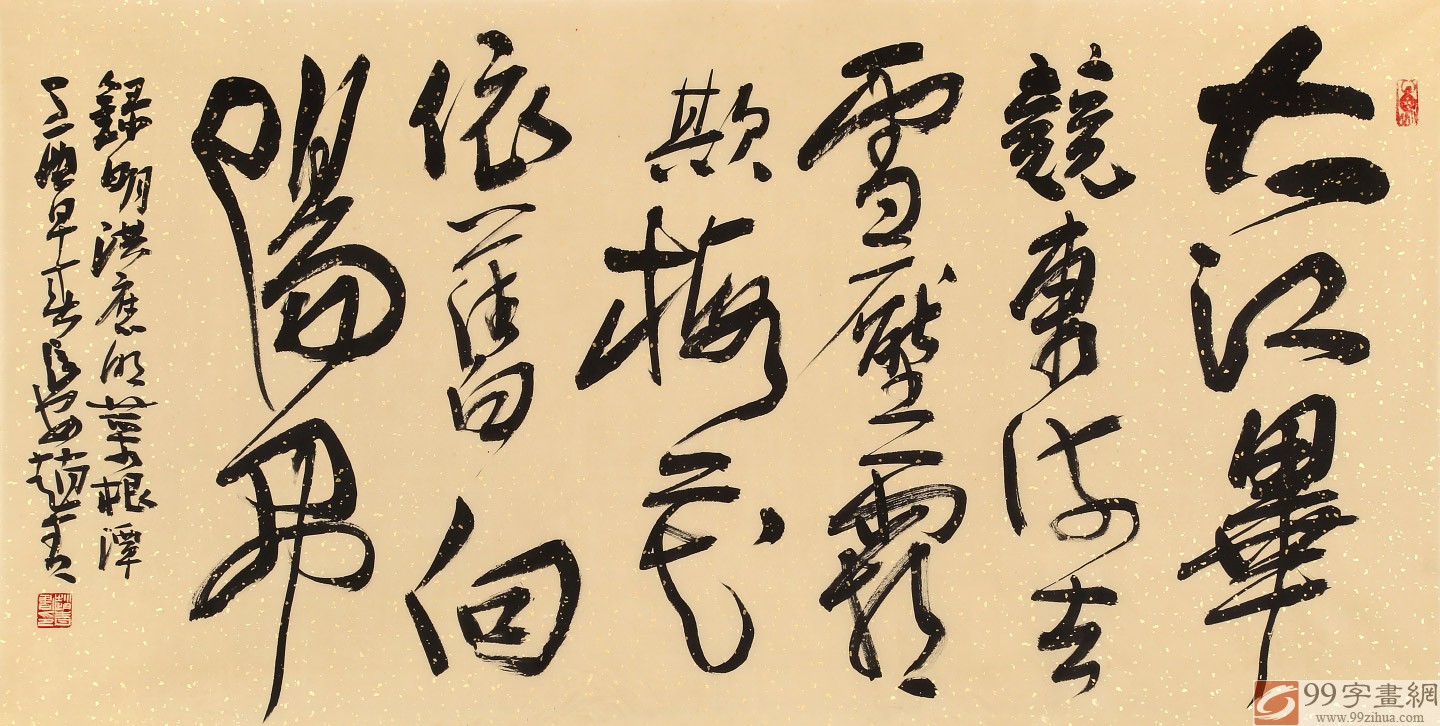 大江畢
競東流去
雪壓霜
欺梅花
依舊向
陽開
錄明洪應明菜根譚
早春長安趙青
99字畫網
www.99zihua.com